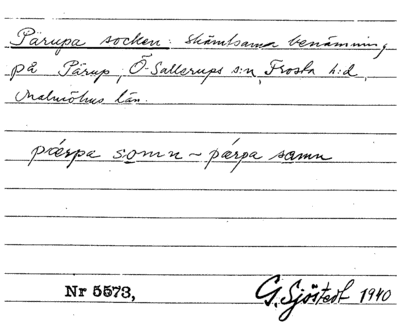 Pärupa socken: skämtsama benämning
på Pärup, Ö. Sallerups s:n, Frosta h:d,
Malmöhus län.
pǽrpa somn ~ párpa samn
Nr 5573,
G. Sjöstedt 1940